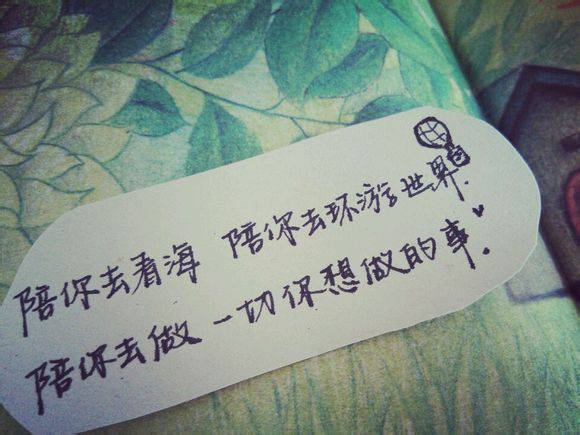 陪你去看海 陪你去环游世界.
陪你去做一切你想做的事.